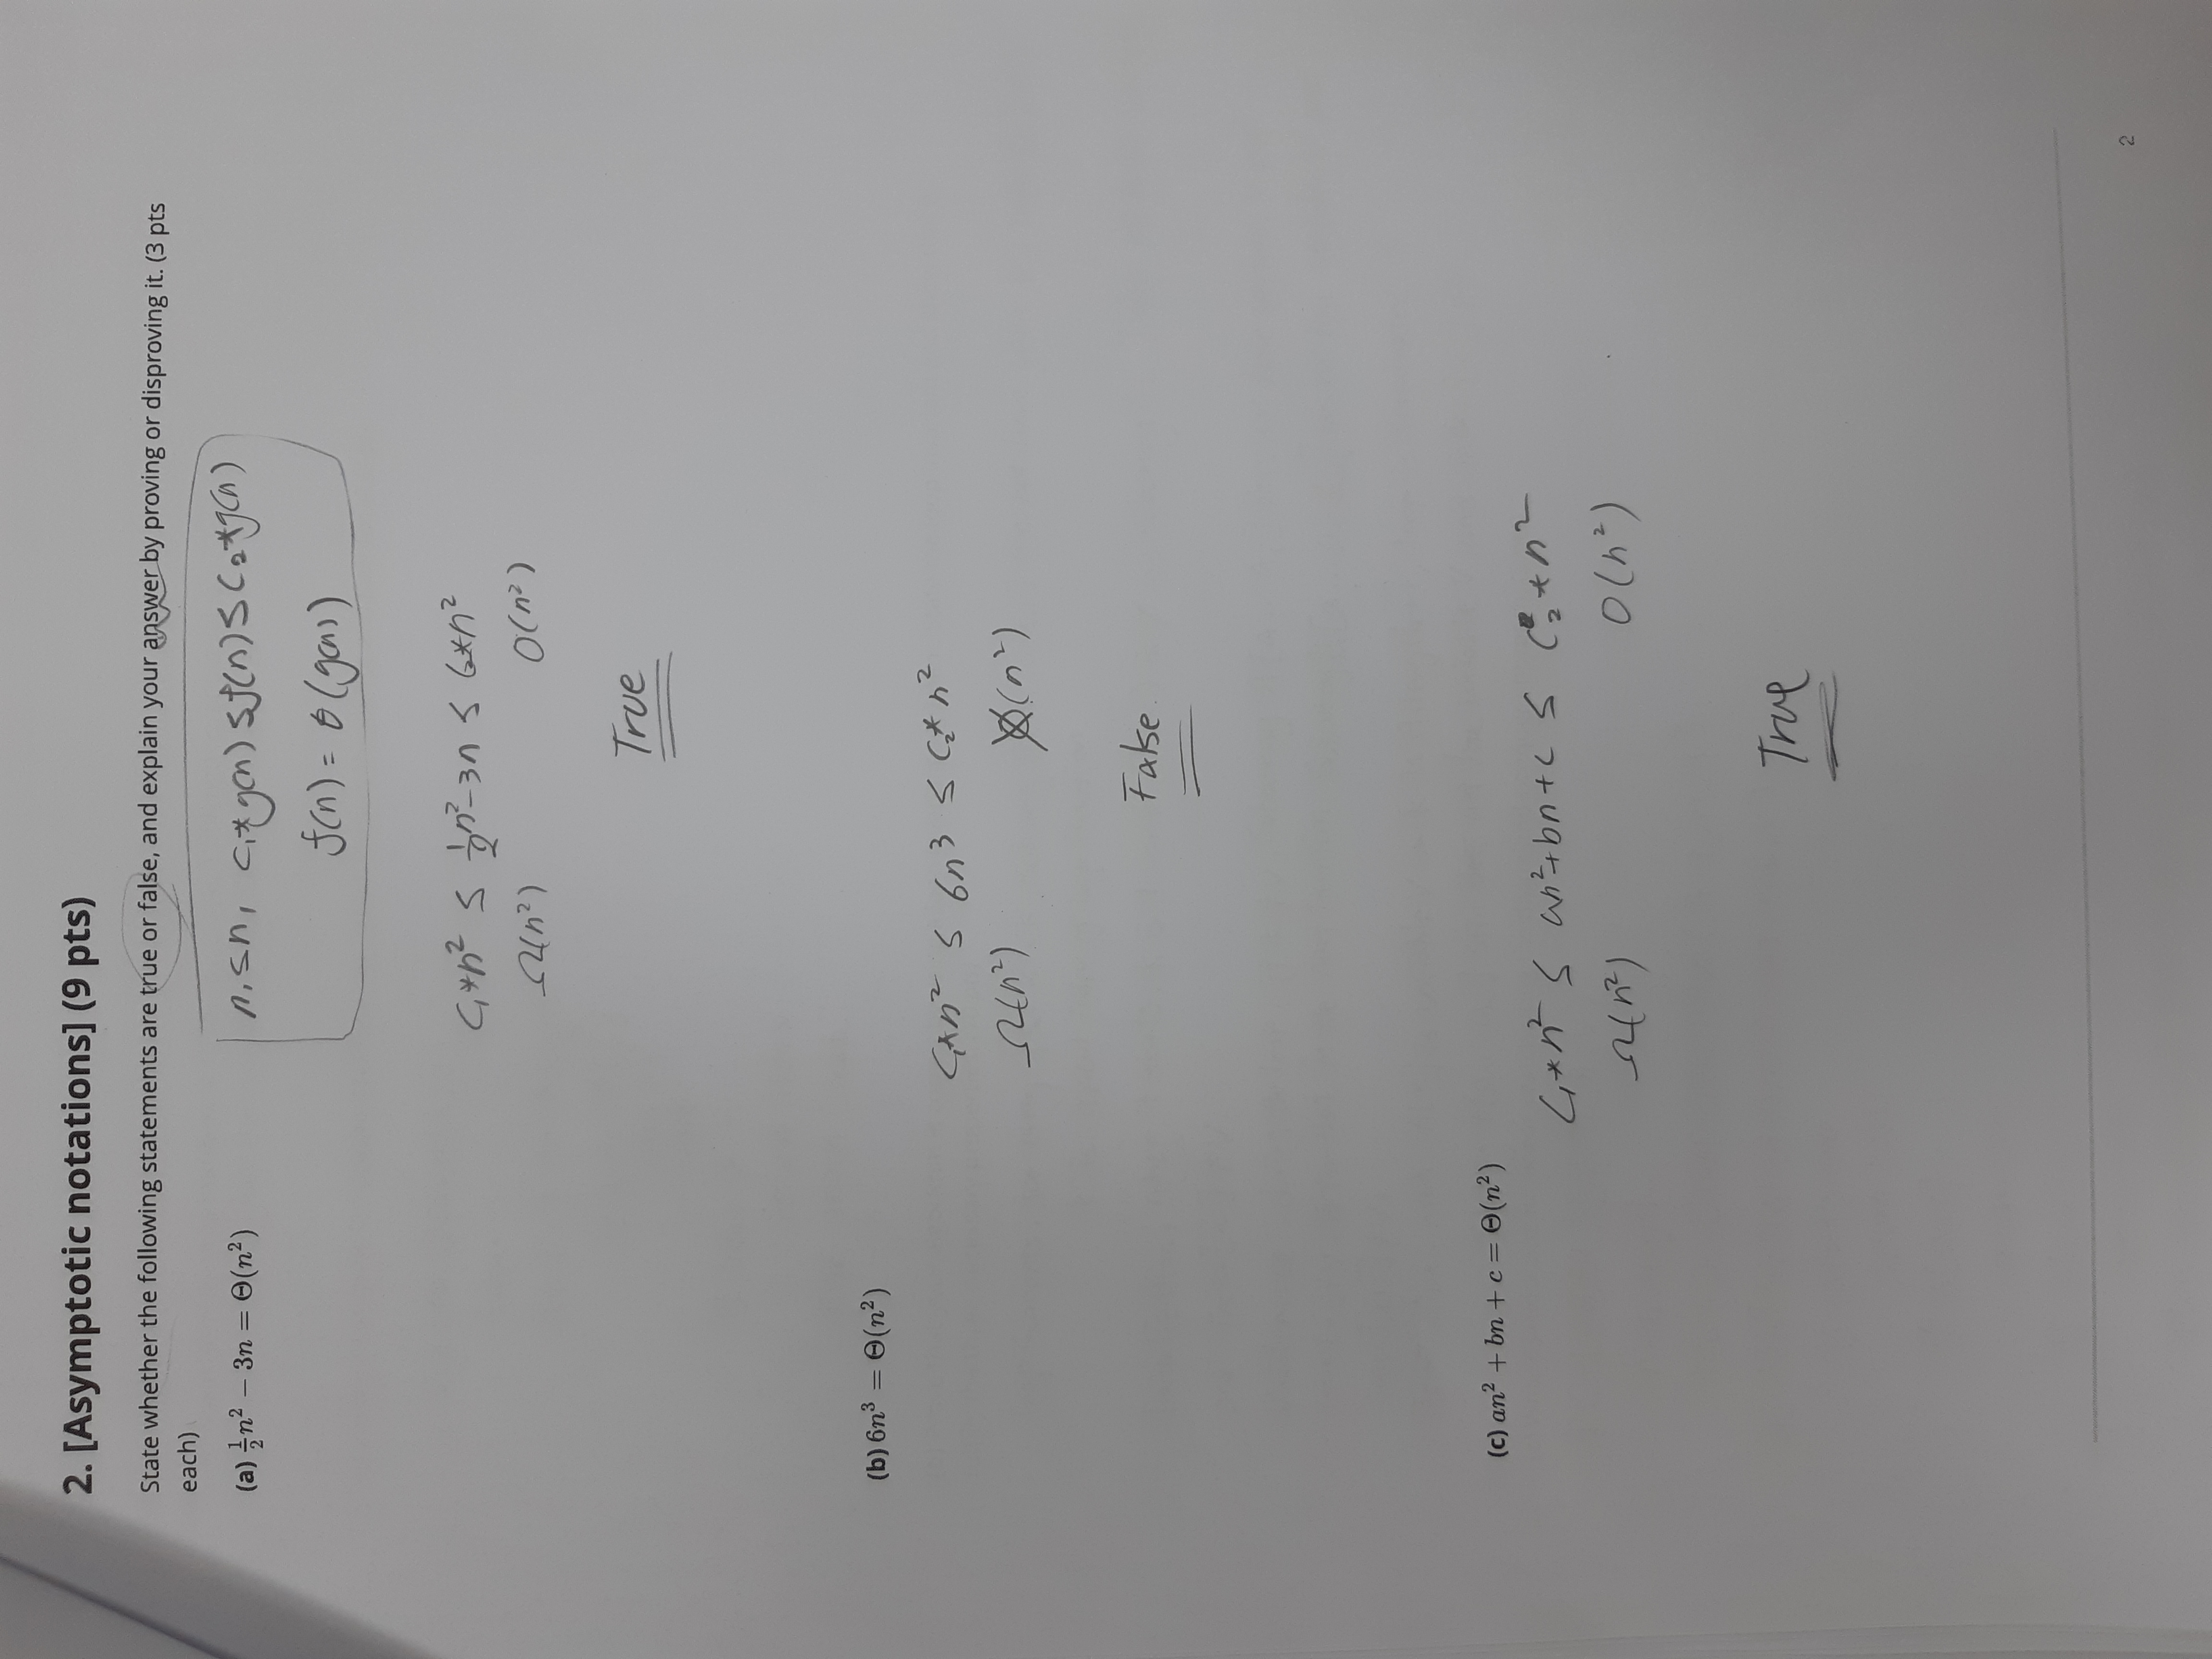 2. [Asymptotic notations] (9 pts)
State whether the following statements are true or false, and explain your answer by proving or disproving it. (3 pts
each)
(a) ½n² − 3n = Θ(n²)
n₁≤n, C₁*g(n) ≤ f(n) ≤ C₂*g(n)
f(n) = θ(g(n))
C₁*n² ≤ ½n²-3n ≤ C₂*n²
Ω(n²) O(n²)
True
(b) 6n³ = Θ(n²)
C₁*n² ≤ 6n³ ≤ C₂*n²
Ω(n²) O(n²)
False
(c) an² + bn + c = Θ(n²)
C₁*n² ≤ an²+bn+c ≤ C₂*n²
Ω(n²) O(n²)
True
2